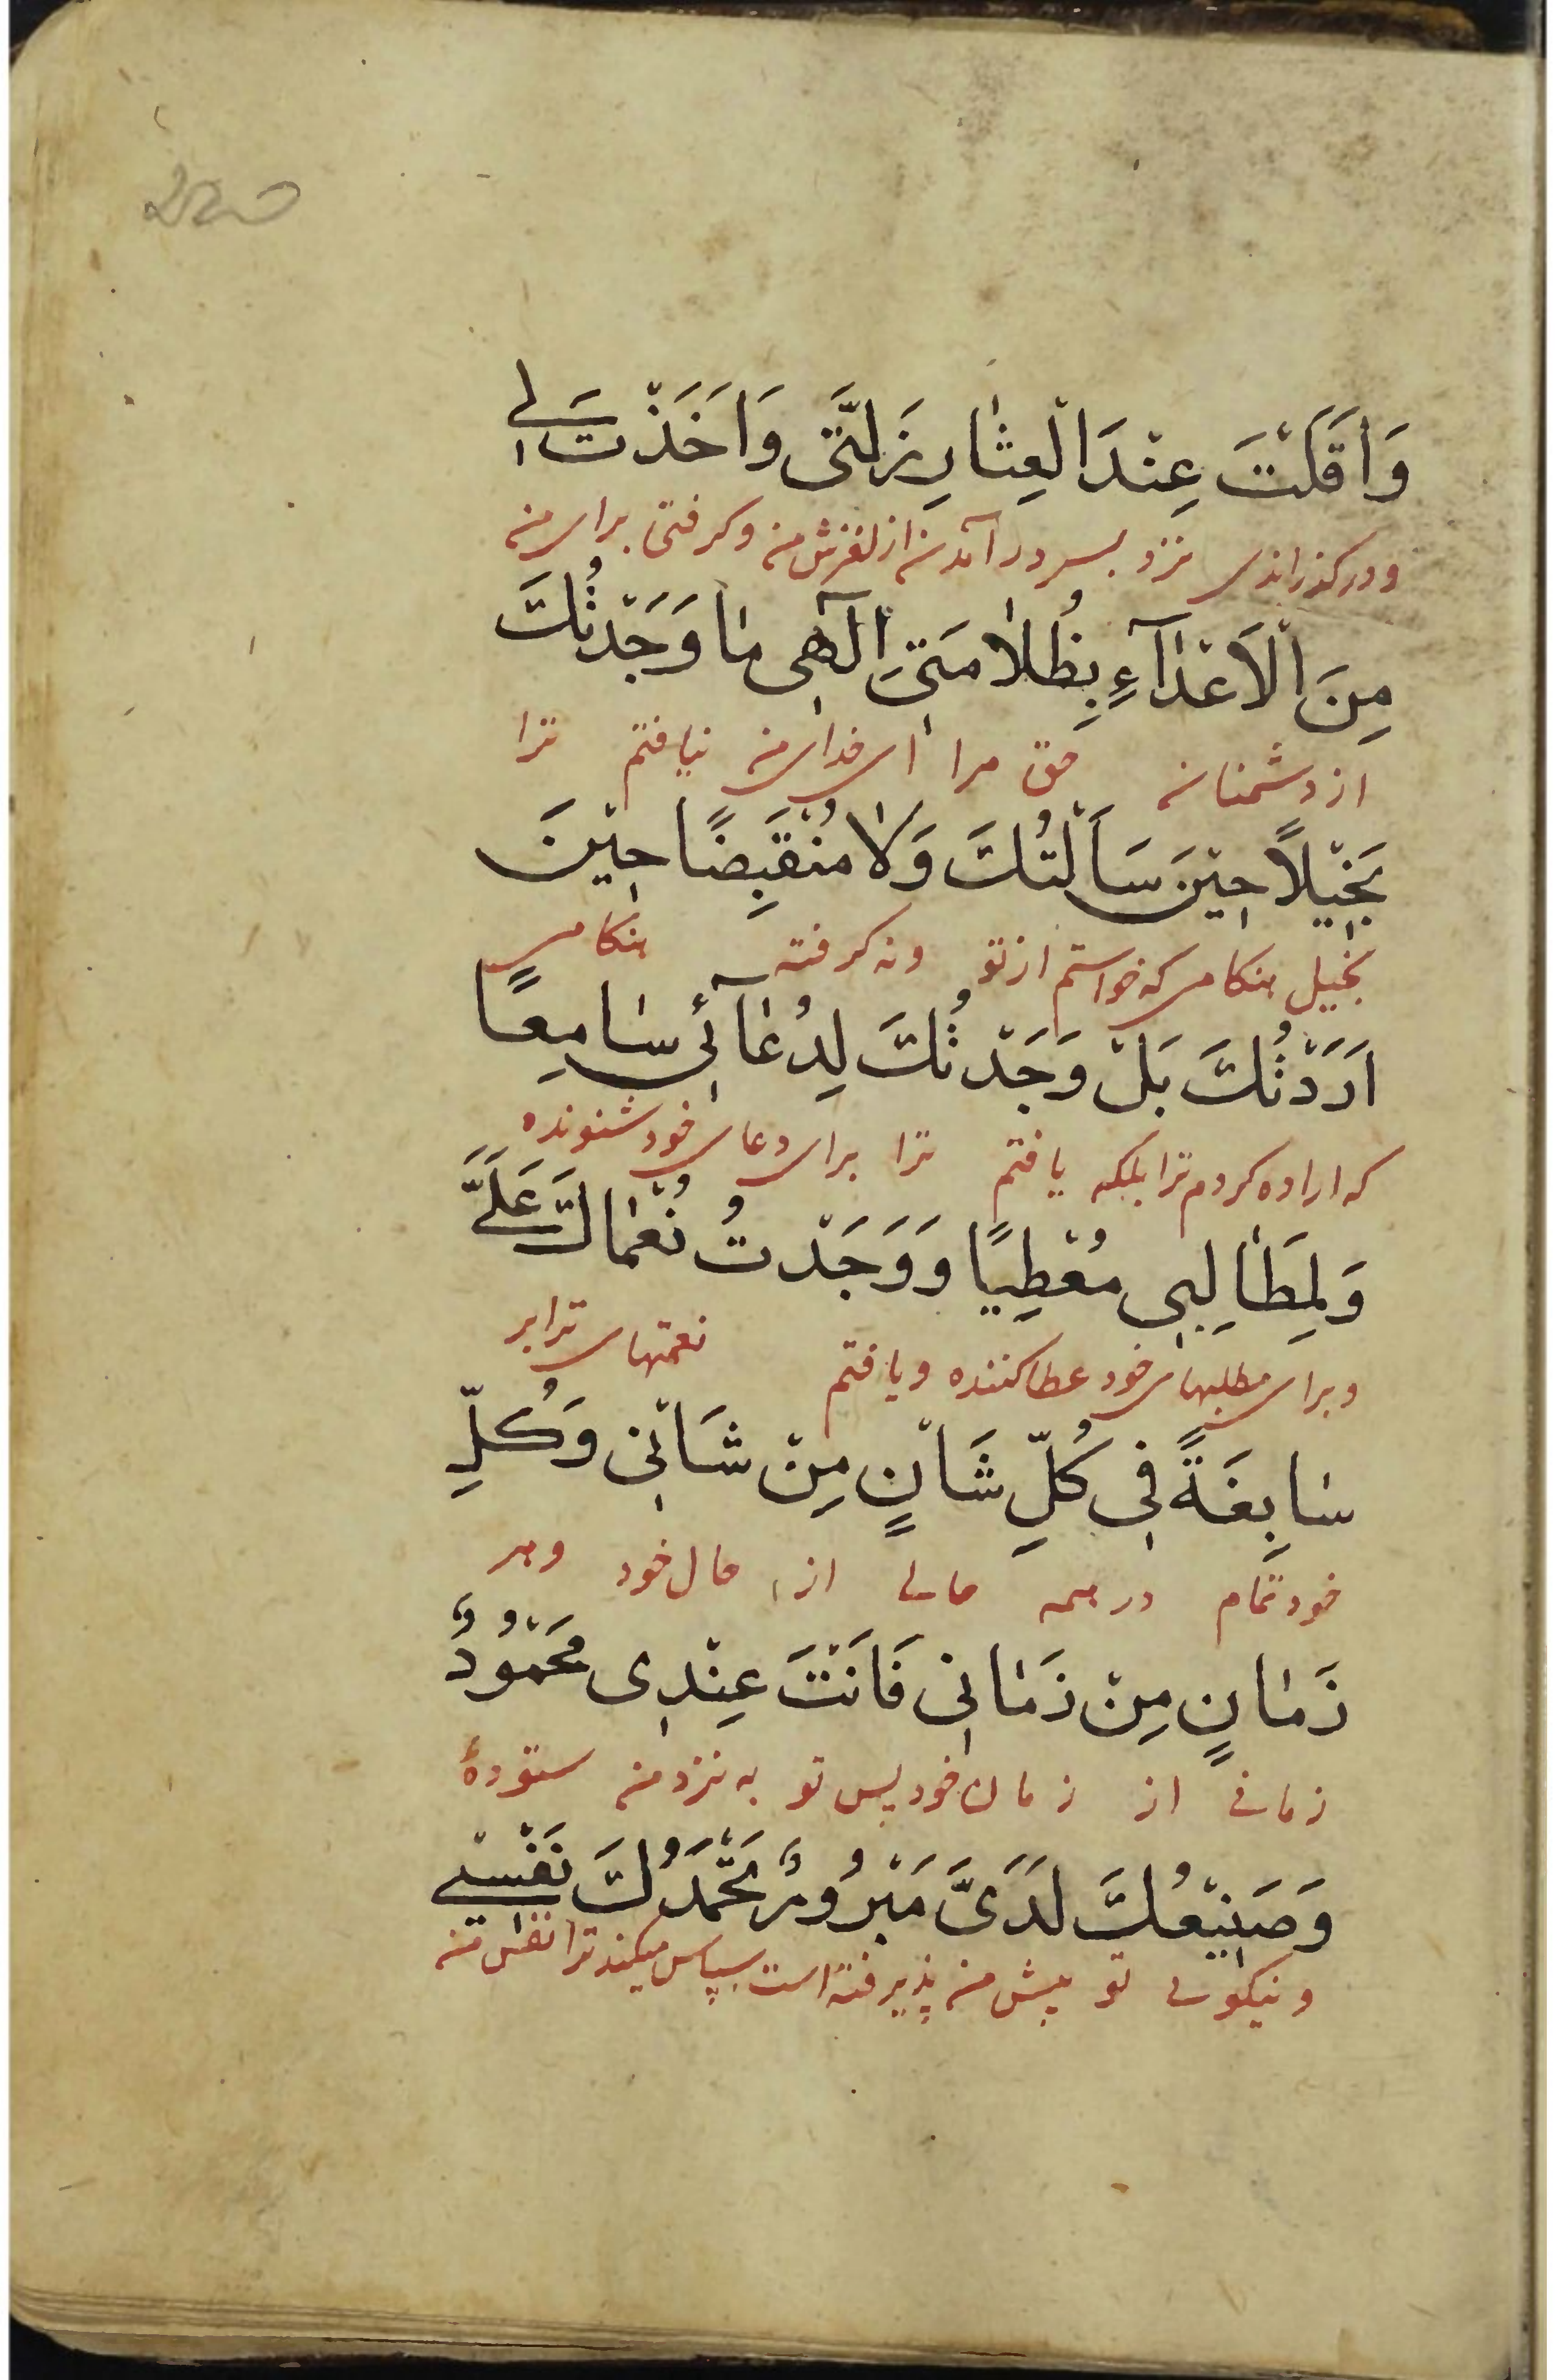 وَاَقَلْتَ عِنْدَ الْعِثٰارِ زَلَّتی وَاَخَذْتَ لی
و درکذراندی نزد بسر در آمدن از لغزش من و کرفتی برای من
مِنَ الْاَعْدٰآءِ بِظُلٰامَتی اِلٰهی مٰا وَجَدْتُكَ
از دشمنان حق مرا ای خدای من نیافتم ترا
بَخیْلاً حیْنَ سَاَلْتُكَ وَلٰا مُنْقَبِضًا حیْنَ
بخیل هنکامی که خواستم از تو و نه کرفته هنکامی
اَرَدْتُكَ بَلْ وَجَدْتُكَ لِدُعٰآئی سٰامِعًا
که اراده کردم ترا بلکه یافتم ترا برای دعای خود شنونده
وَلِمَطٰالِبی مُعْطِیًا وَوَجَدْتُ نُعْمٰاكَ عَلَیَّ
و برای مطلبهای خود عطا کننده و یافتم نعمتهای ترا بر
سٰابِغَةً فی كُلِّ شَاْنٍ مِنْ شَاْنی وَكُلِّ
خود تمام در همه حالی از حال خود و هر
زَمٰانٍ مِنْ زَمٰانی فَاَنْتَ عِنْدی مَحْمُوْدٌ
زمانی از زمان خود پس تو به نزد من ستودهٔ
وَصَنیْعُكَ لَدَیَّ مَبْرُوْرٌ تَحْمَدُكَ نَفْسی
و نیکوی تو پیش من پذیرفته است سپاس میکند ترا نفس من